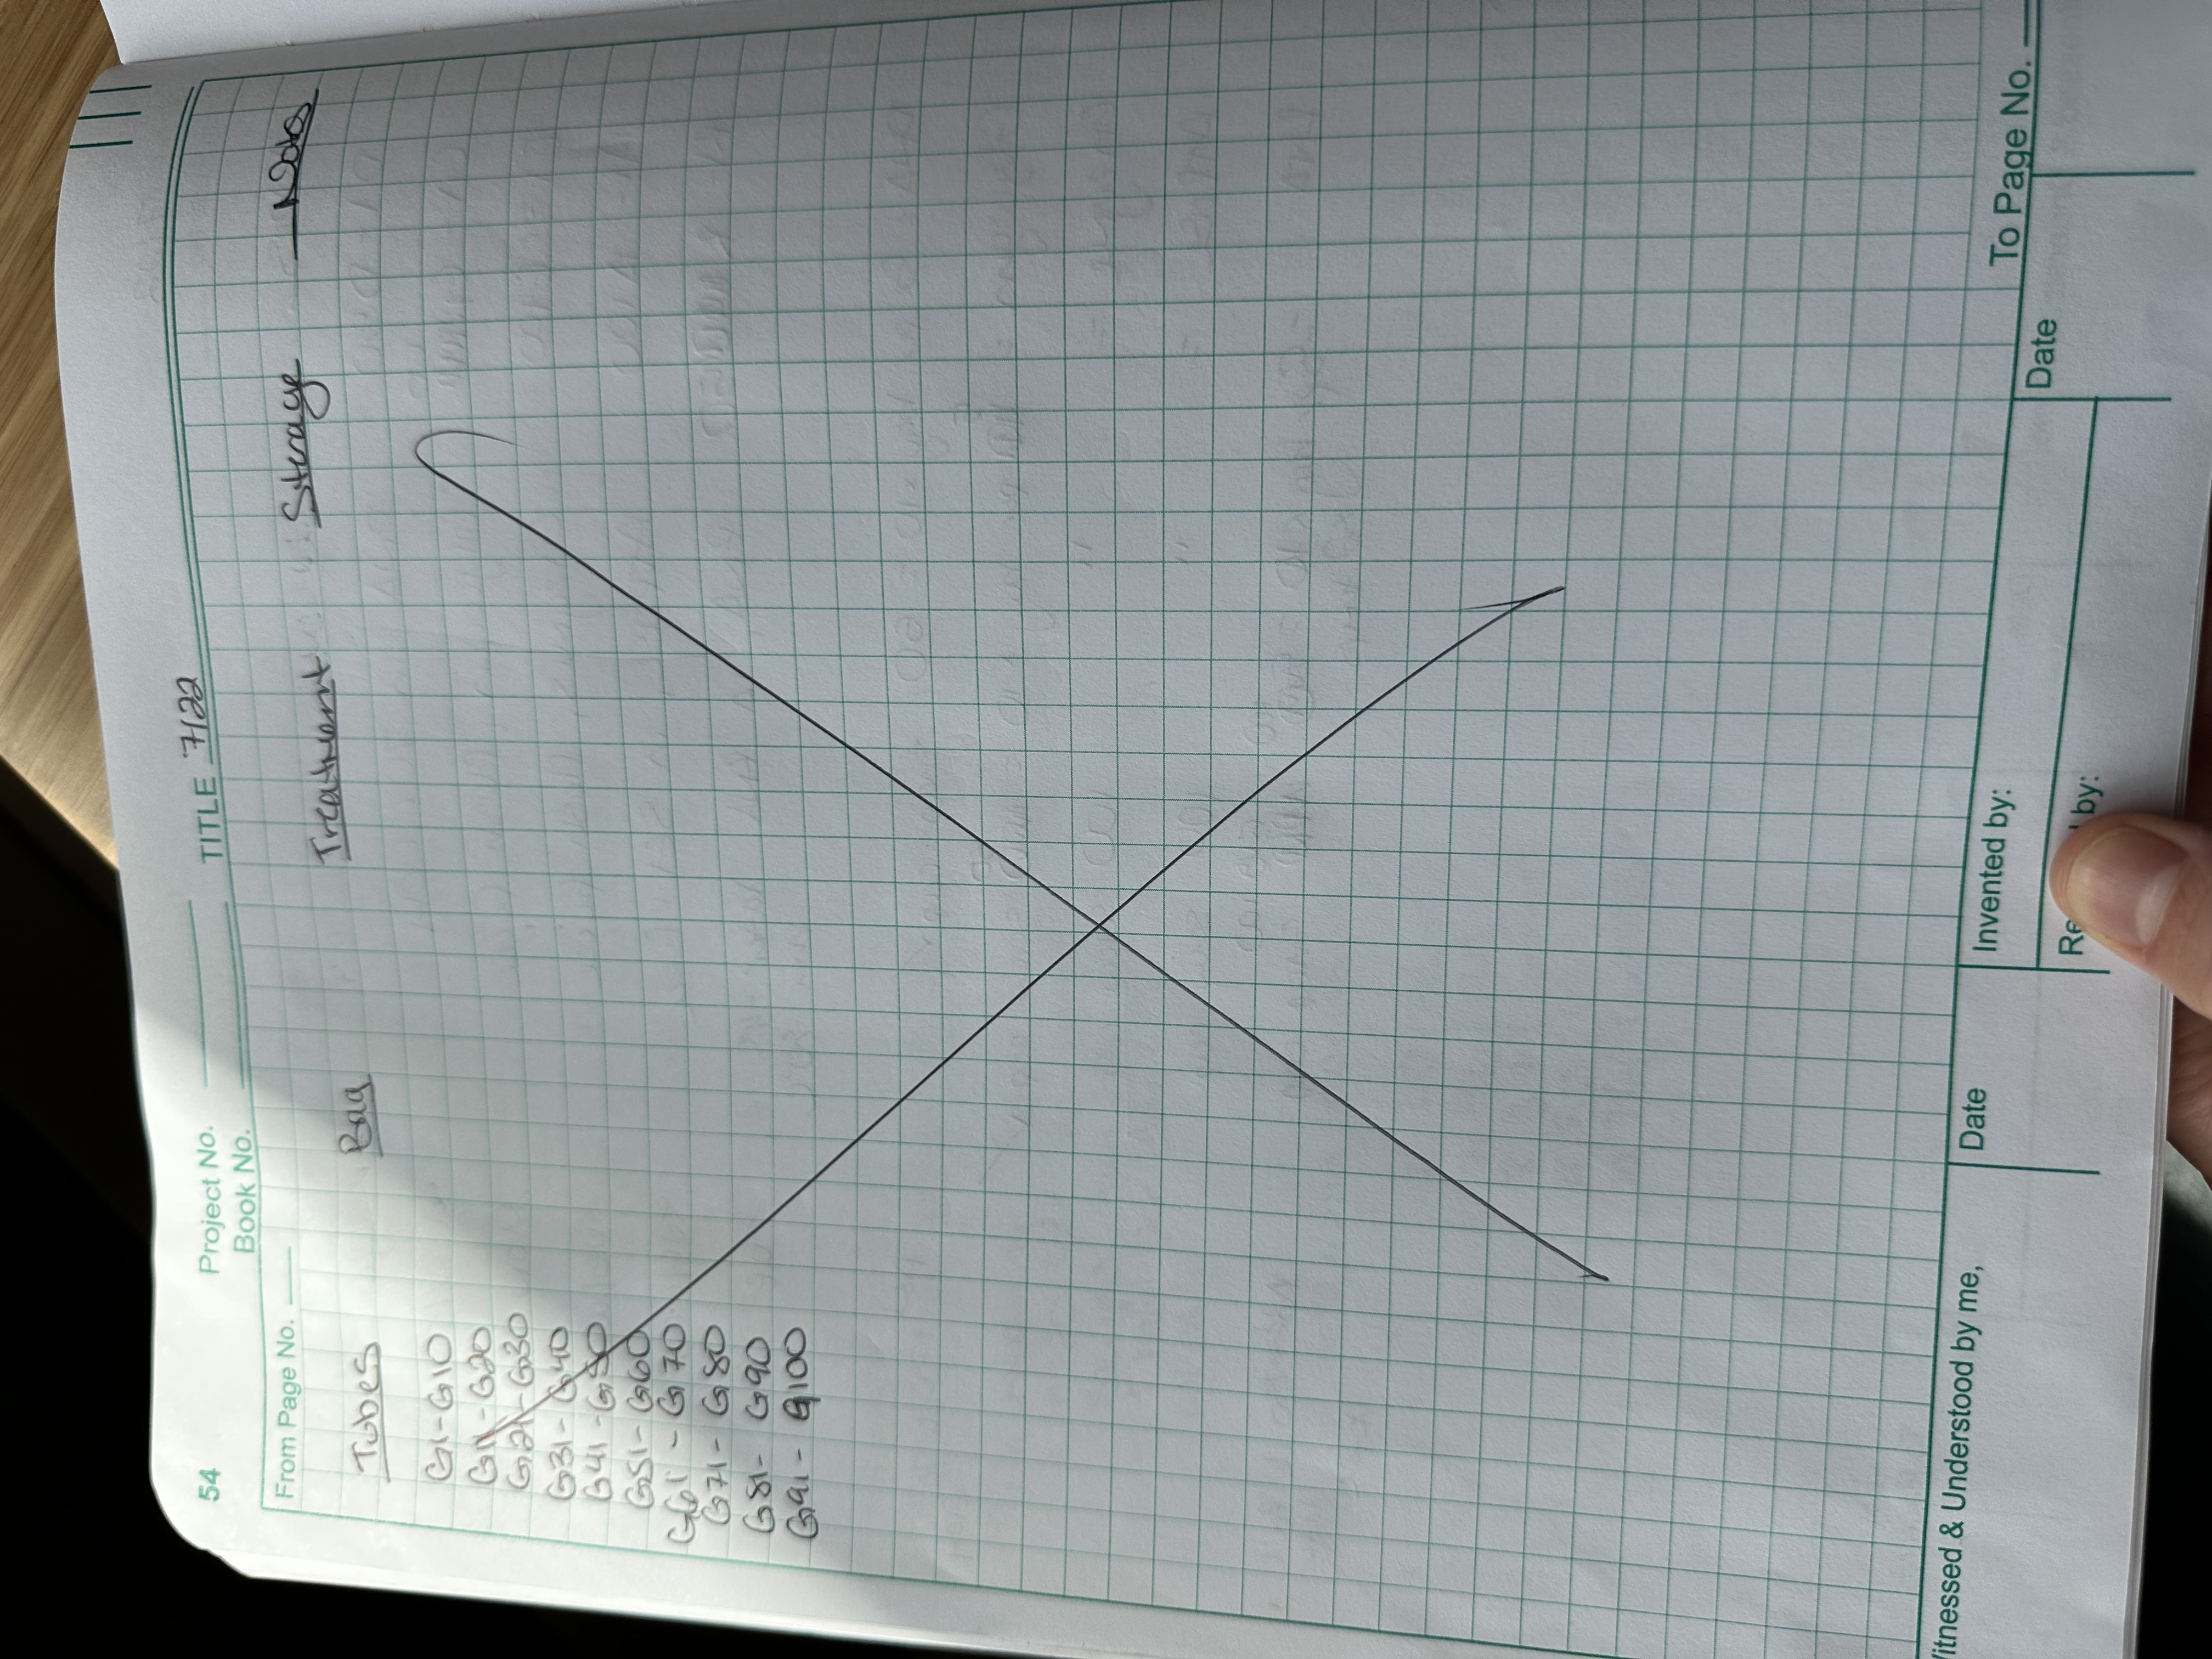 54 Project No. TITLE 7/22
Book No.
From Page No.
Tubes Bag Treatment Storage Notes
G1-G10
G11-G20
G21-G30
G31-G40
G41-G50
G51-G60
G61-G70
G71-G80
G81-G90
G91-G100
To Page No.
itnessed & Understood by me, Date Invented by: Date
by: